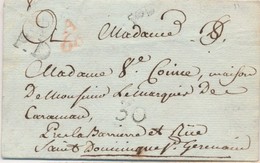 2 Madame
Madame Ve. Coinne, maison
de Monsieur Le Marquis de
Caraman
Pres la Barriere et Rue
Saint Dominique st. Germain
30